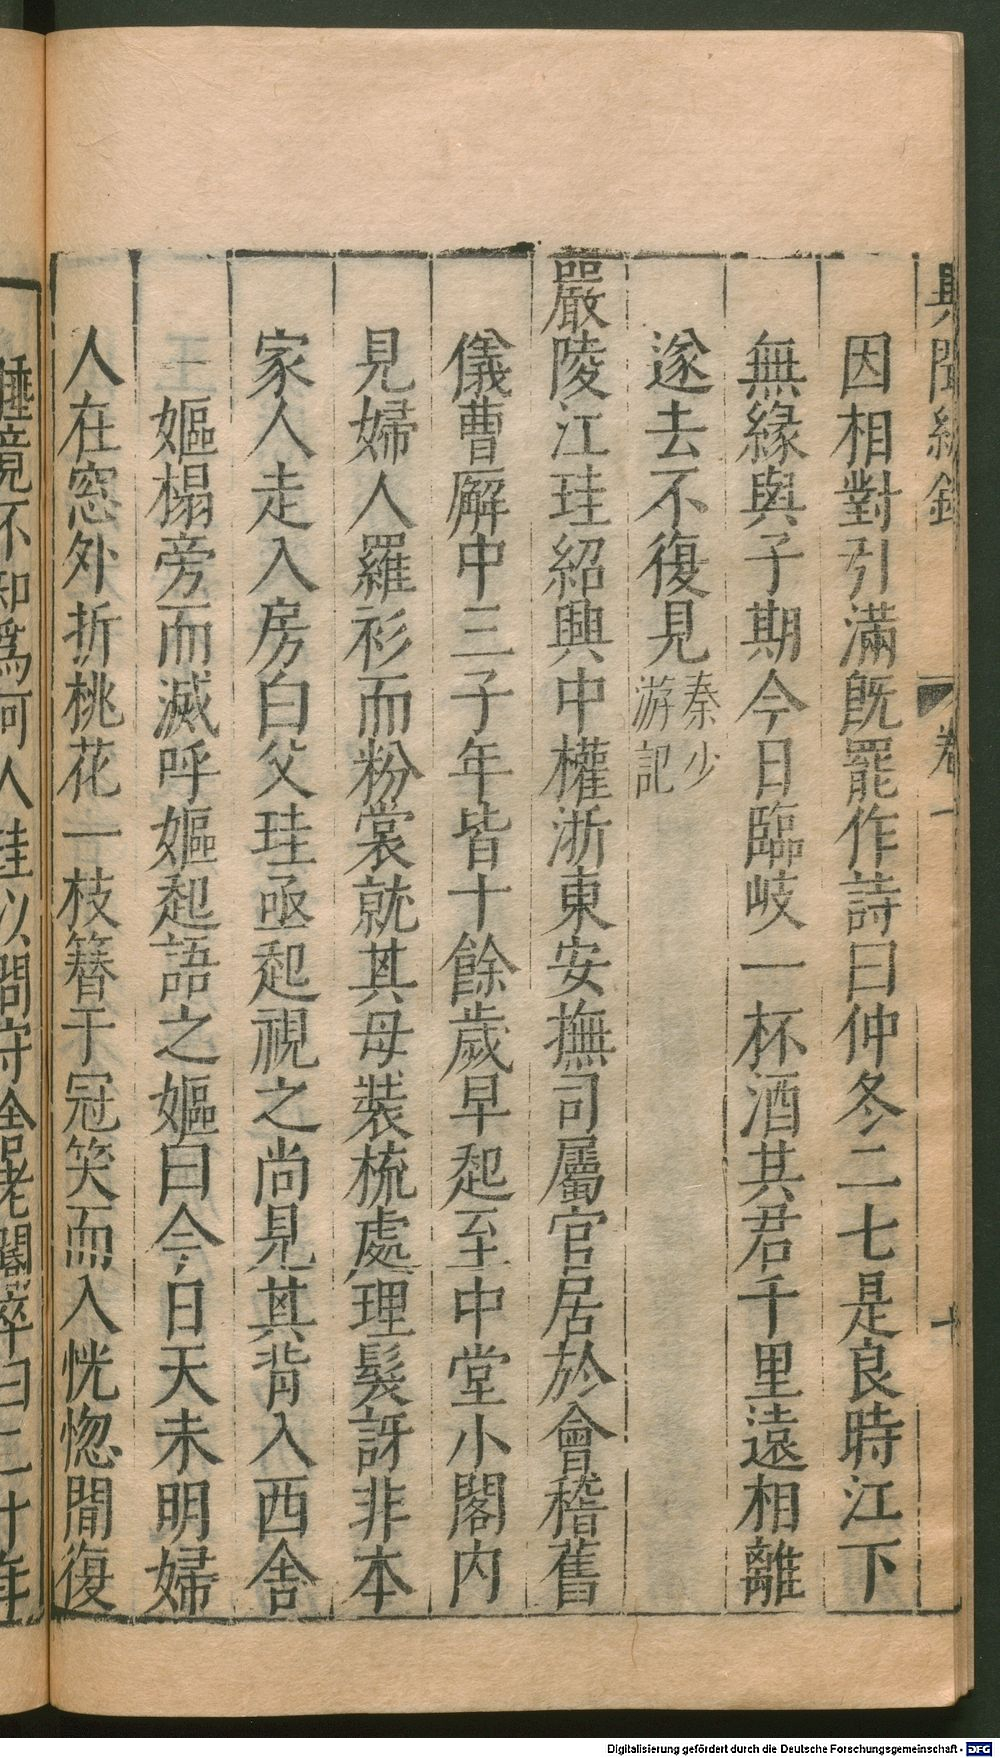 異聞總錄 卷一 十
因相對引滿旣罷作詩曰仲冬二七是良時江下
無緣與子期今日臨岐一杯酒其君千里遠相離
遂去不復見秦少游記
嚴陵江珪紹興中權浙東安撫司屬官居於會稽舊
儀曹廨中三子年皆十餘歲早起至中堂小閣内
見婦人羅衫而粉裳就其母裝梳處理髮訝非本
家人走入房白父珪亟起視之尚見其背入西舍
王嫗榻旁而滅呼嫗起語之嫗曰今日天未明婦
人在窓外折桃花一枝簪于冠笑而入恍惚間復
睡竟不知爲何人珪以問守舍老閽卒曰二十年
Digitalisierung gefördert durch die Deutsche Forschungsgemeinschaft - DFG